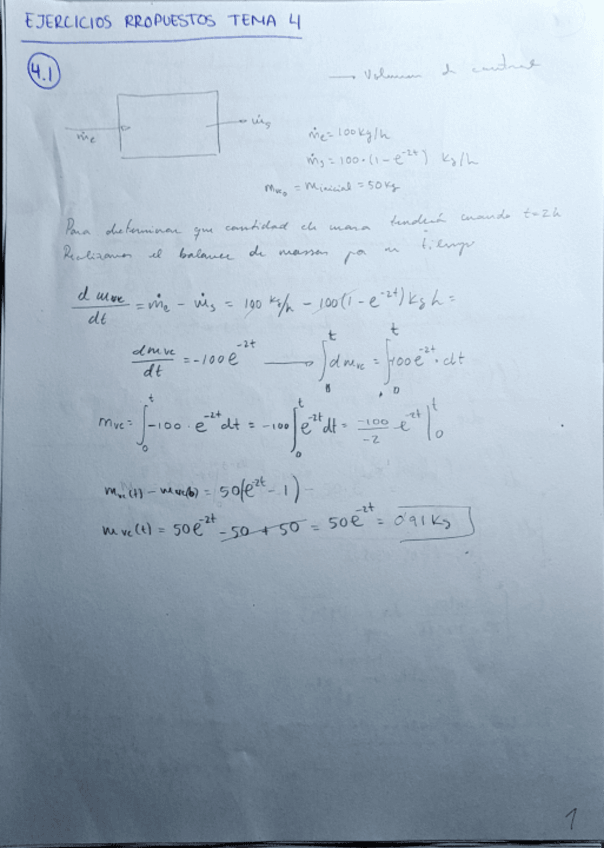 EJERCICIOS RROPUESTOS TEMA 4
4.1
→ Volumen de control
ṁe → → ṁs
ṁe = 100 kg/h
ṁs = 100·(1 - e^-2t) kg/h
mvc₀ = m inicial = 50 kg
Para determinar que cantidad de masa tendría cuando t=2h
Realizamos el balance de massas por un tiempo
d mvc/dt = ṁe - ṁs = 100 kg/h - 100(1 - e^-2t) kg h =
dmvc/dt = -100e^-2t → ∫₀^t dmvc = ∫₀^t -100e^-2t · dt
mvc = ∫₀^t -100 · e^-2t dt = -100 ∫₀^t e^-2t dt = -100/-2 e^-2t |₀^t
mvc(t) - mvc(0) = 50(e^-2t - 1)
mvc(t) = 50e^-2t - 50 + 50 = 50e^-2t = 0'91 kg
1